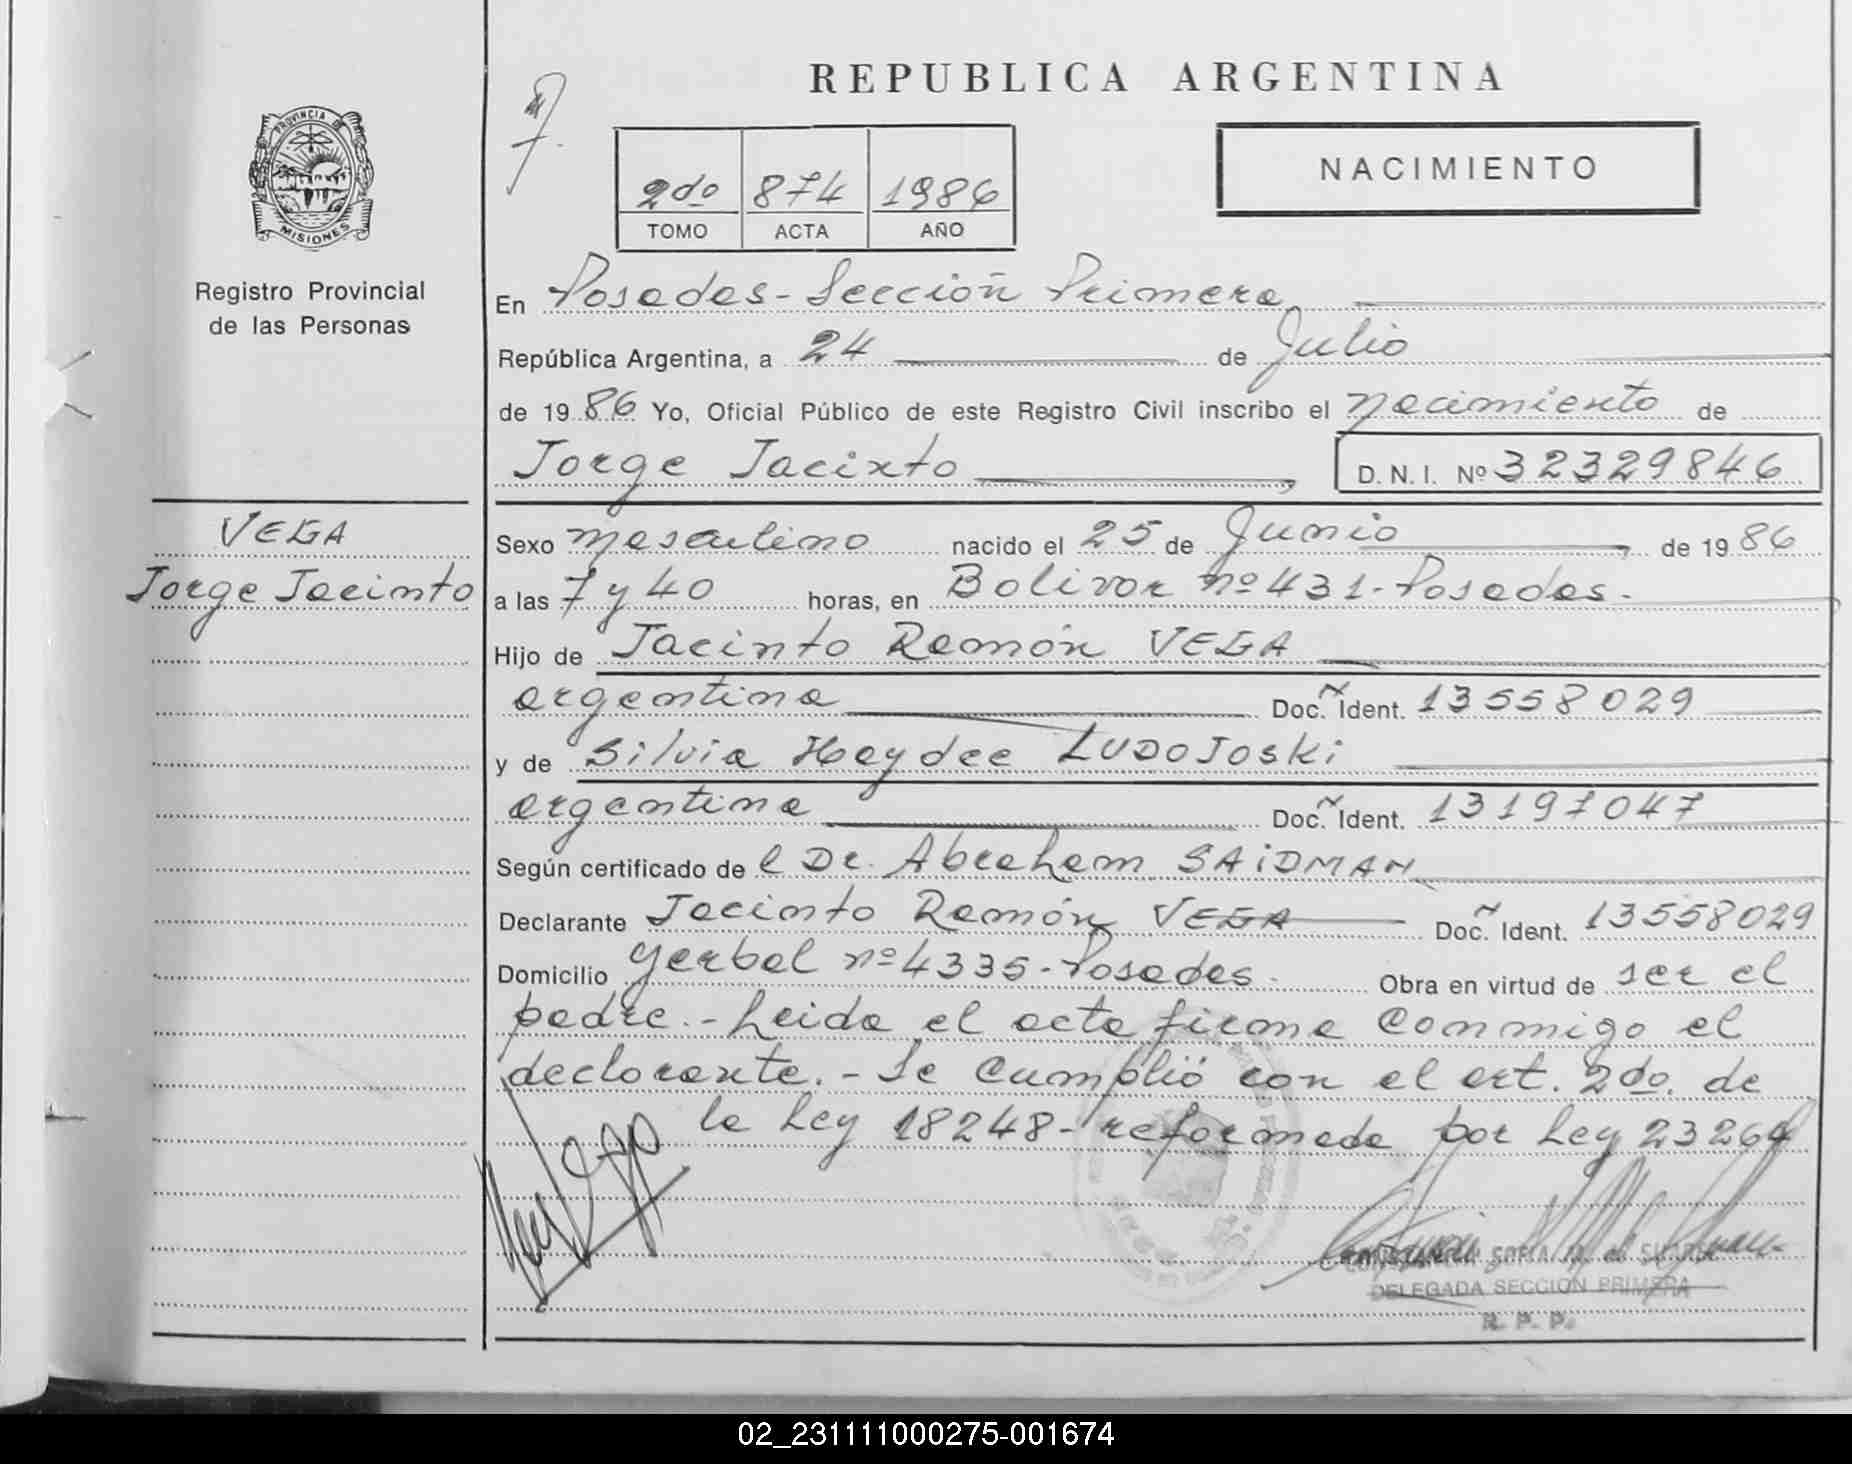 REPUBLICA ARGENTINA
PROVINCIA DE
MISIONES
Registro Provincial
de las Personas
2do 874 1986
TOMO ACTA AÑO
NACIMIENTO
En Posadas - Sección Primera
República Argentina, a 24 de Julio
de 1986 Yo, Oficial Público de este Registro Civil inscribo el nacimiento de
Jorge Jacinto, D. N. I. Nº 32329846
VEGA
Jorge Jacinto
Sexo masculino nacido el 25 de Junio de 1986
a las 7 y 40 horas, en Bolivar nº 431 - Posadas.
Hijo de Jacinto Ramón VEGA
argentina Doc. Ident. 13558029
y de Silvia Haydee LUDOJOSki
argentina Doc. Ident. 13197047
Según certificado de l Dr. Abraham SAiDMAN
Declarante Jacinto Ramón VEGA Doc. Ident. 13558029
Domicilio yerbal nº 4335 - Posadas. Obra en virtud de ser el
padre. - Leida el acta firma conmigo el
declarante. - Se cumplió con el art. 2do. de
la Ley 18248 - reformada por Ley 23264
SOFIA M. de
DELEGADA SECCION PRIMERA
R. P. P.
02_231111000275-001674